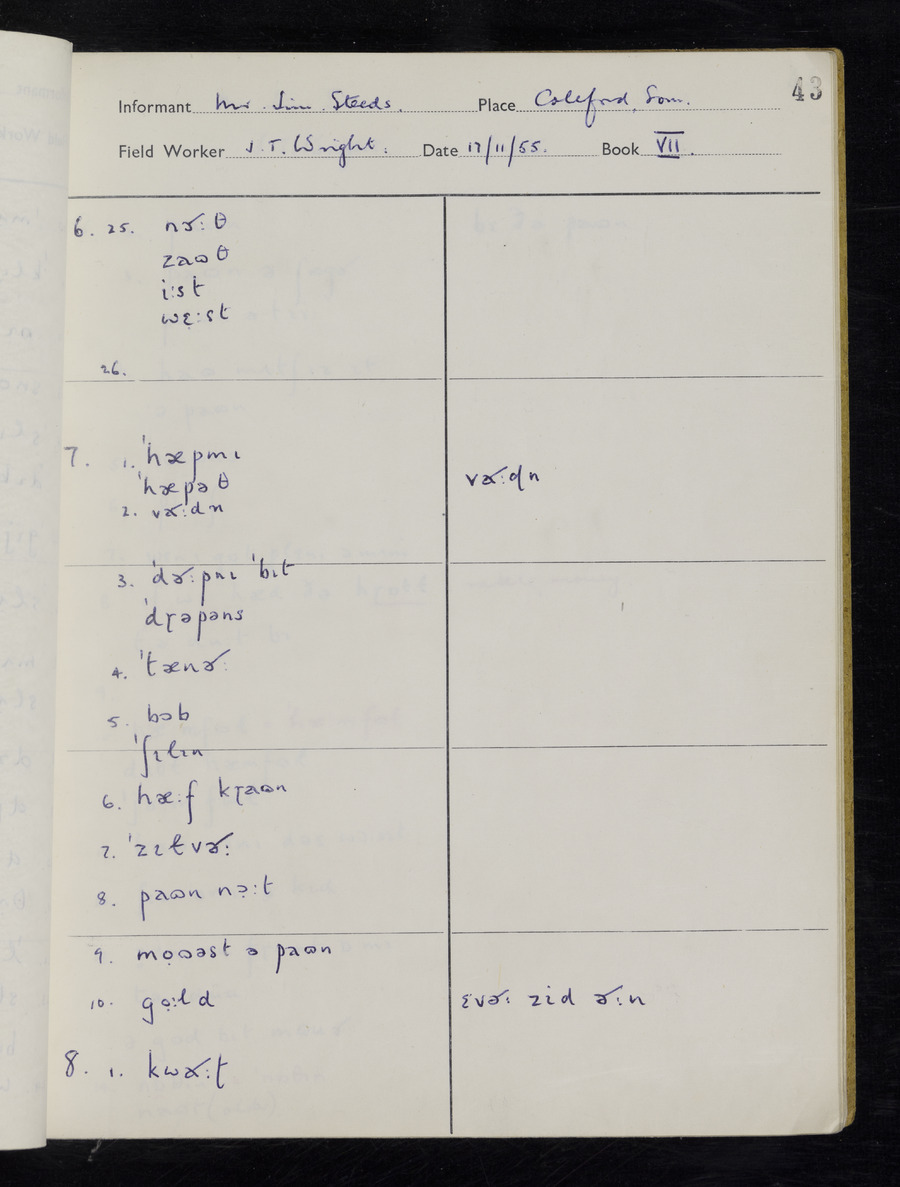 43
Informant Mr. Jim Steeds. Place Coleford, Som.
Field Worker J. T. Wright. Date 17/11/55. Book VII.
6. 25. nɤː θ
zaɷ θ
i̩ːs t
ɯɛ̣ːst
26.
7. 1. ˈhæpmɩ
ˈhæpə θ
vɤːɖn
2. vɤːdn
3. ˈdɚːpnɩ ˈbɩt
ˈdɽəpəns
4. ˈtænɚː
5. bɔb
ˈʃɪlɪn
6. hæːf kɽaɷn
7. ˈzɪɫvɚː
8. paɷn nɔ̣ːt
9. mọɷəst ə paɷn
10. gọːɫd
ɛvɚː zid ɚːn
8. 1. kwɤːʈ